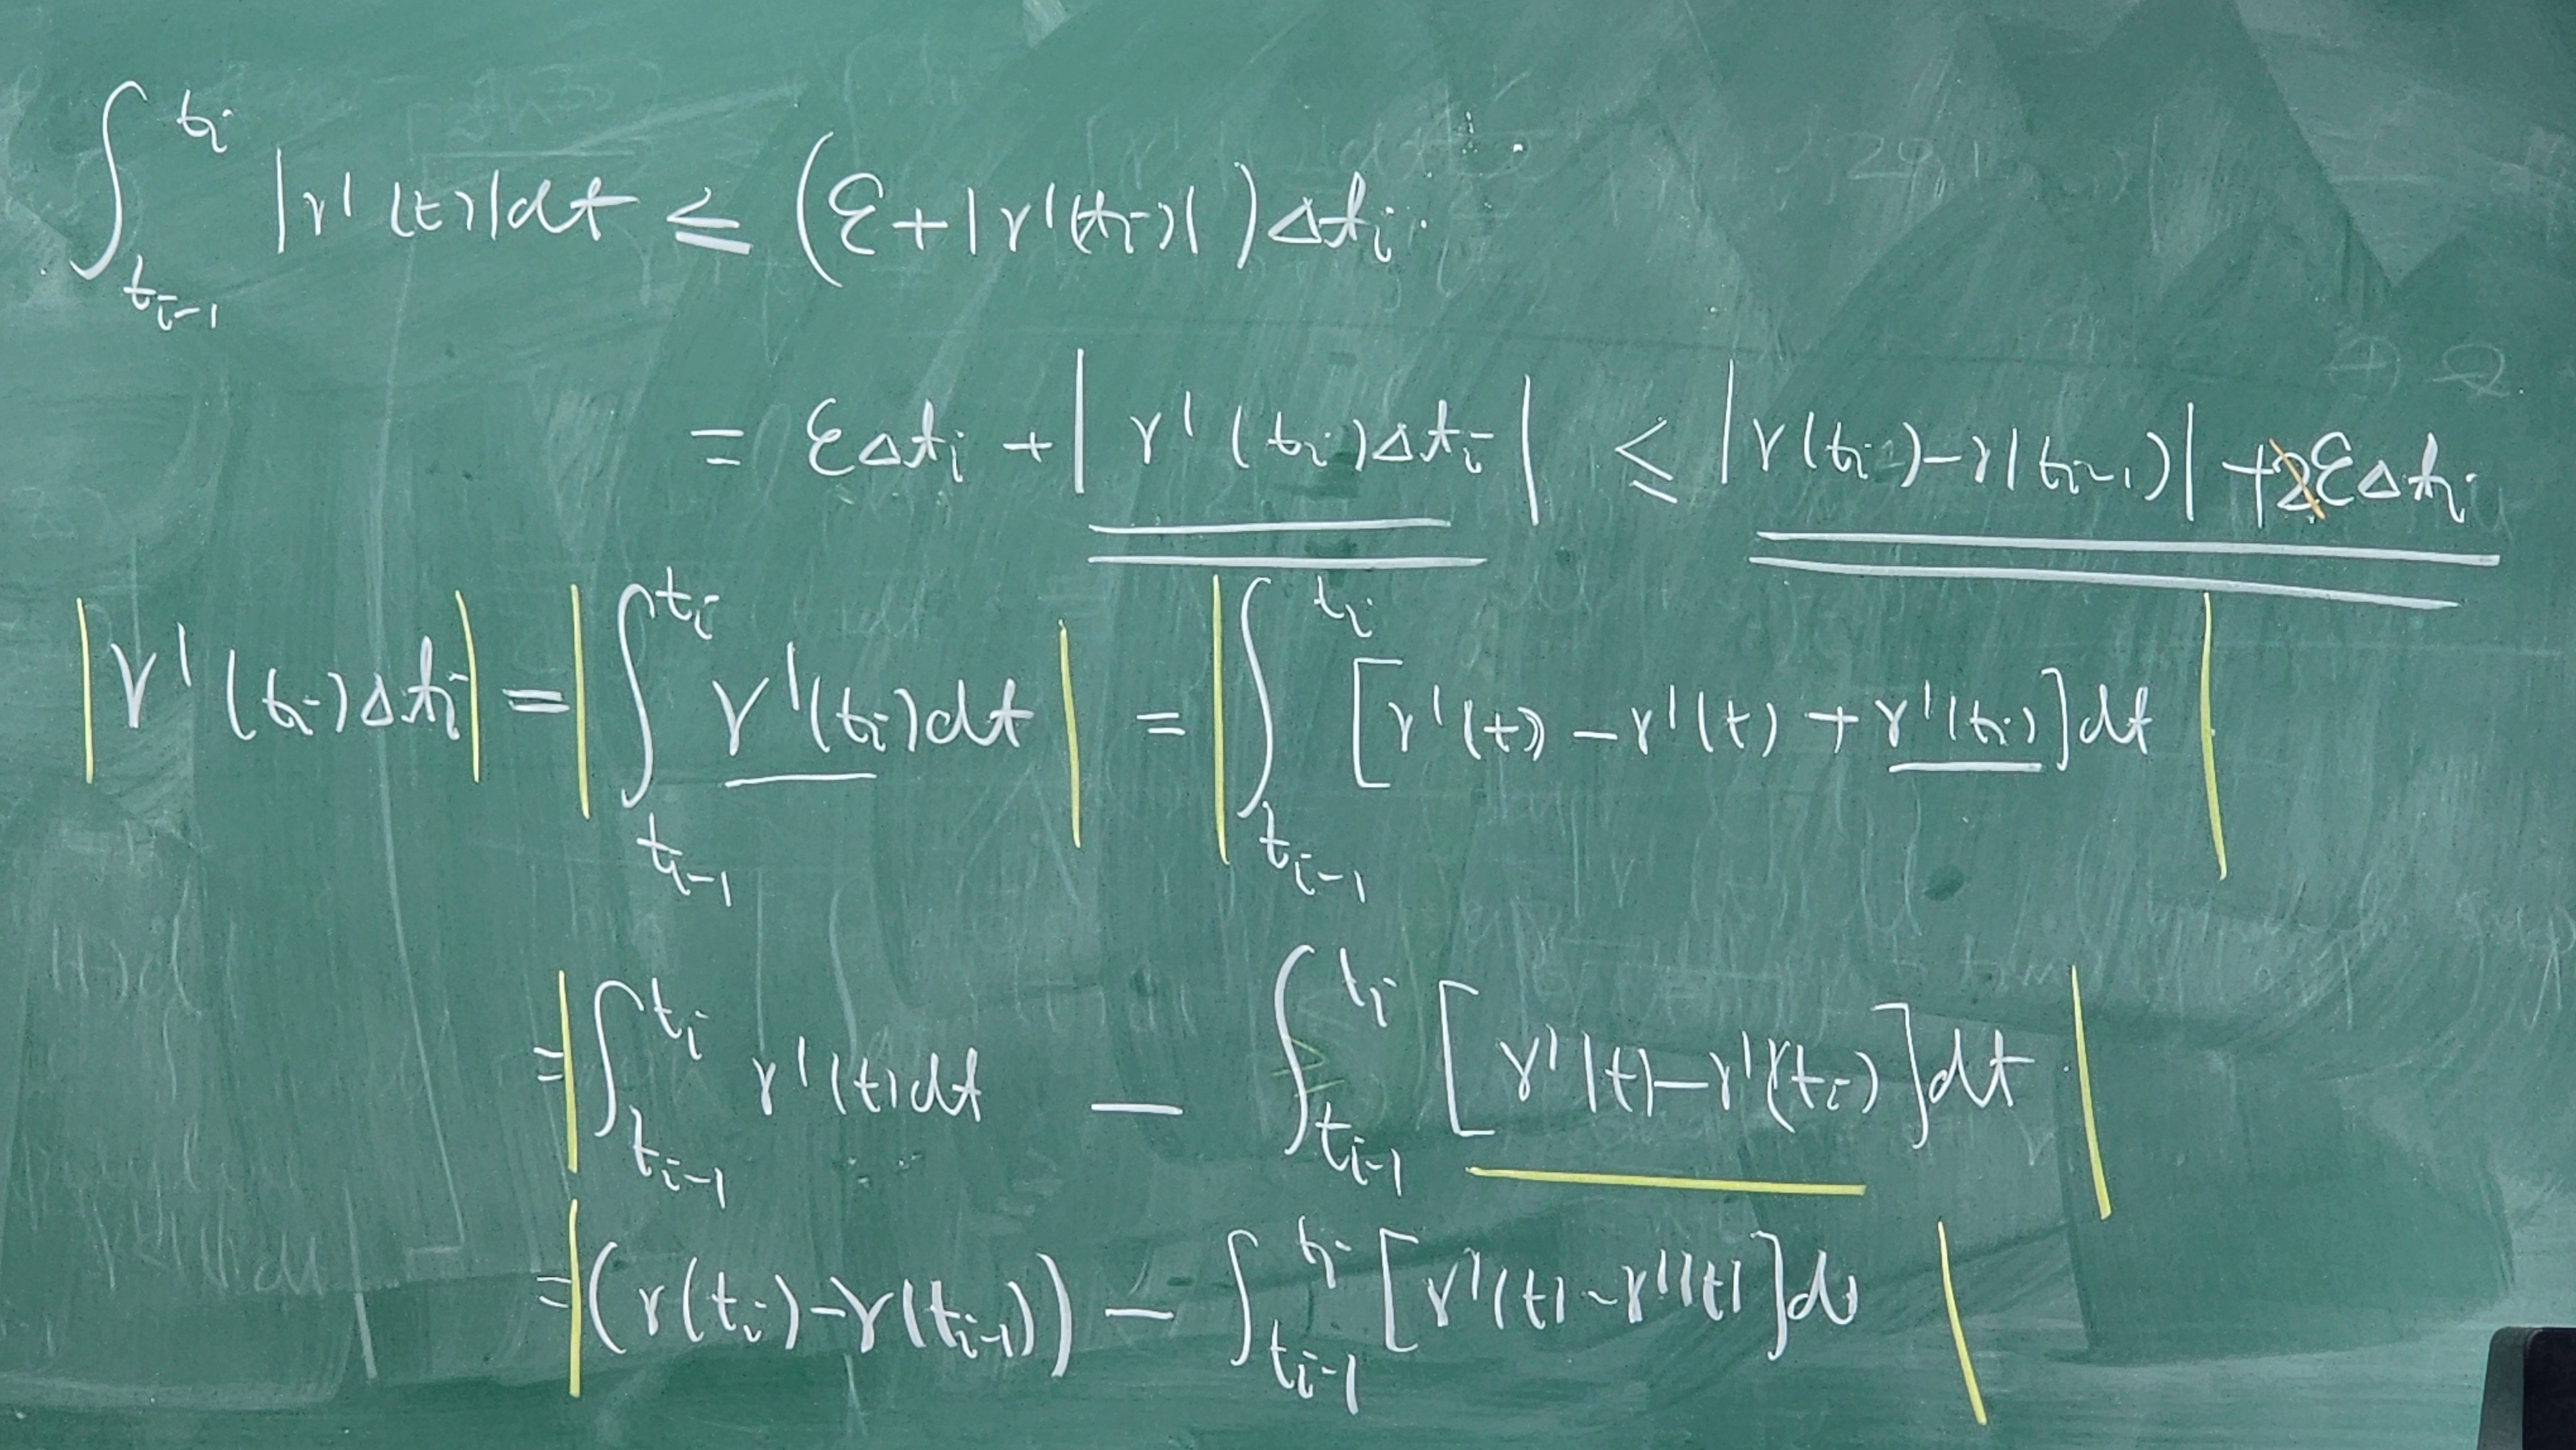 ∫_{t_{i-1}}^{t_i} |r'(t)|dt ≤ (ε+|r'(t_i)|)Δt_i
= εΔt_i + |r'(t_i)Δt_i| ≤ |r(t_i)-r(t_{i-1})| + εΔt_i
|r'(t_i)Δt_i| = |∫_{t_{i-1}}^{t_i} r'(t_i)dt| = |∫_{t_{i-1}}^{t_i} [r'(t) - r'(t) + r'(t_i)]dt|
= |∫_{t_{i-1}}^{t_i} r'(t)dt - ∫_{t_{i-1}}^{t_i} [r'(t)-r'(t_i)]dt|
= |(r(t_i)-r(t_{i-1})) - ∫_{t_{i-1}}^{t_i} [r'(t)-r'(t)]dt|